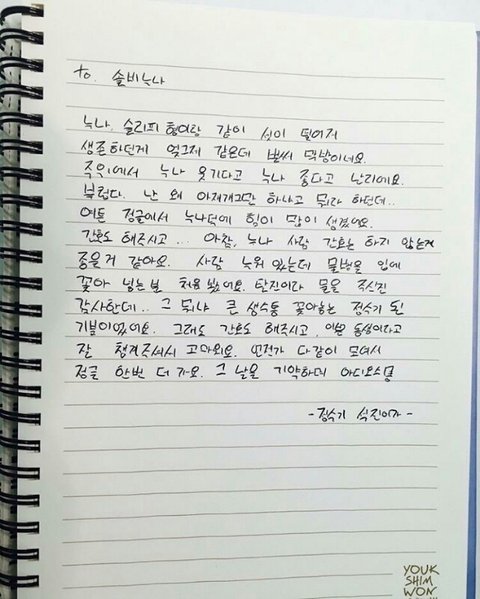 to. 솔비누나
누나. 슬리피 형이랑 같이 섬이 떨어져
생존하던게 엊그제 같은데 벌써 막방이네요.
주위에서 누나 웃기다고 누나 좋다고 난리에요.
부럽다. 난 왜 아재개그만 하냐고 뭐라 하던데..
여튼 정글에서 누나덕에 힘이 많이 생겼어요.
간호도 해주시고... 아참, 누나 사람 간호는 하지 않는게
좋을거 같아요. 사람 누워 있는데 물병을 입에
꽂아 넣는 분 처음 봤어요. 탈진이라 물을 주신건
감사한데.. 그 뭐냐 큰 생수통 꽂아놓는 정수기 된
기분이었어요. 그래도 간호도 해주시고, 이쁜 동생이라고
잘 챙겨주셔서 고마워요. 언젠가 다같이 모여서
정글 한번 더 가요. 그 날을 기약하며 아디오스
- 정수기 석진이가 -
YOUK
SHIM
WON